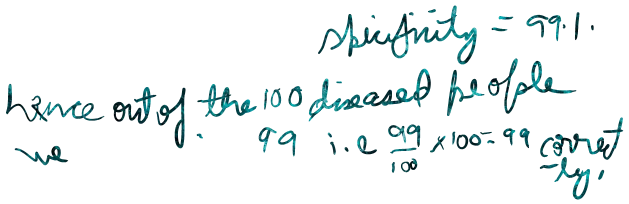 spicifinity = 99.1.
hence out of. the 100 diseased people
we 99 i.e 99/100 x 100 = 99 correct
-ly.